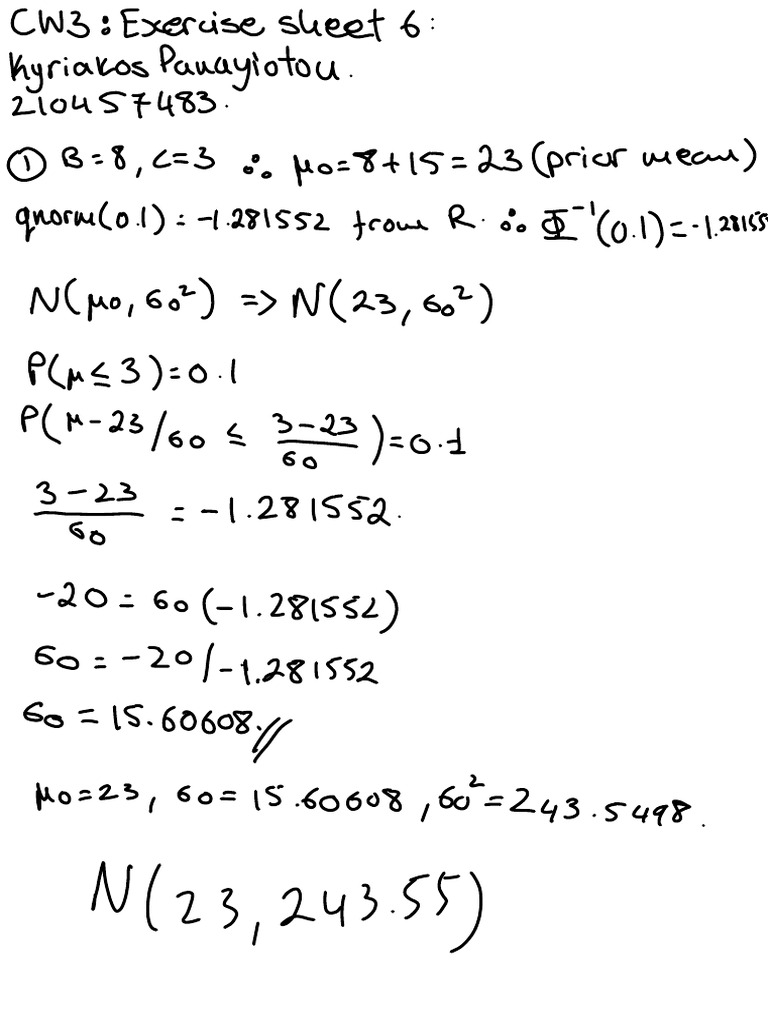 CW3: Exercise sheet 6:
Kyriakos Panayiotou.
210457483.
① B=8, C=3 ∴ μ0=8+15=23 (prior mean)
qnorm(0.1) = -1.281552 from R. ∴ Φ⁻¹(0.1)=-1.28155
N(μ0, σ0²) => N(23, σ0²)
P(μ≤3)=0.1
P(μ-23/σ0 ≤ (3-23)/σ0)=0.1
(3-23)/σ0 = -1.281552.
-20 = σ0(-1.281552)
σ0 = -20/-1.281552
σ0 = 15.60608.//
μ0=23, σ0=15.60608, σ0²=243.5498.
N(23, 243.55)